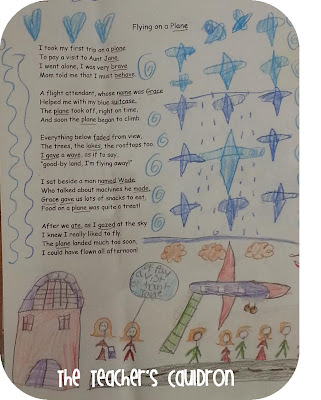 Flying on a Plane
I took my first trip on a plane
To pay a visit to Aunt Jane.
I went alone, I was very brave
Mom told me that I must behave.
A flight attendant, whose name was Grace
Helped me with my blue suitcase.
The plane took off, right on time,
And soon the plane began to climb.
Everything below faded from view,
The trees, the lakes, the rooftops too.
I gave a wave, as if to say
"good-by land, I'm flying away!"
I sat beside a man named Wade,
Who talked about machines he made,
Grace gave us lots of snacks to eat,
Food on a plane was quite a treat!
After we ate, as I gazed at the sky
I knew I really liked to fly.
The plane landed much too soon,
I could have flown all afternoon!
a visit
Jane
The Teacher's Cauldron